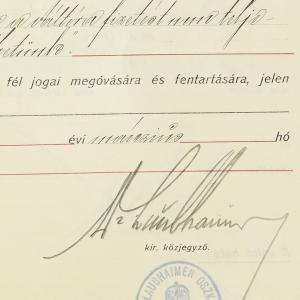 a váltóra fizetést nem telje-
hetünk."
fél jogai megóvására és fentartására, jelen
évi március hó
Dr Laubhaimer
kir. közjegyző.
LAUBHAIMER OSZK